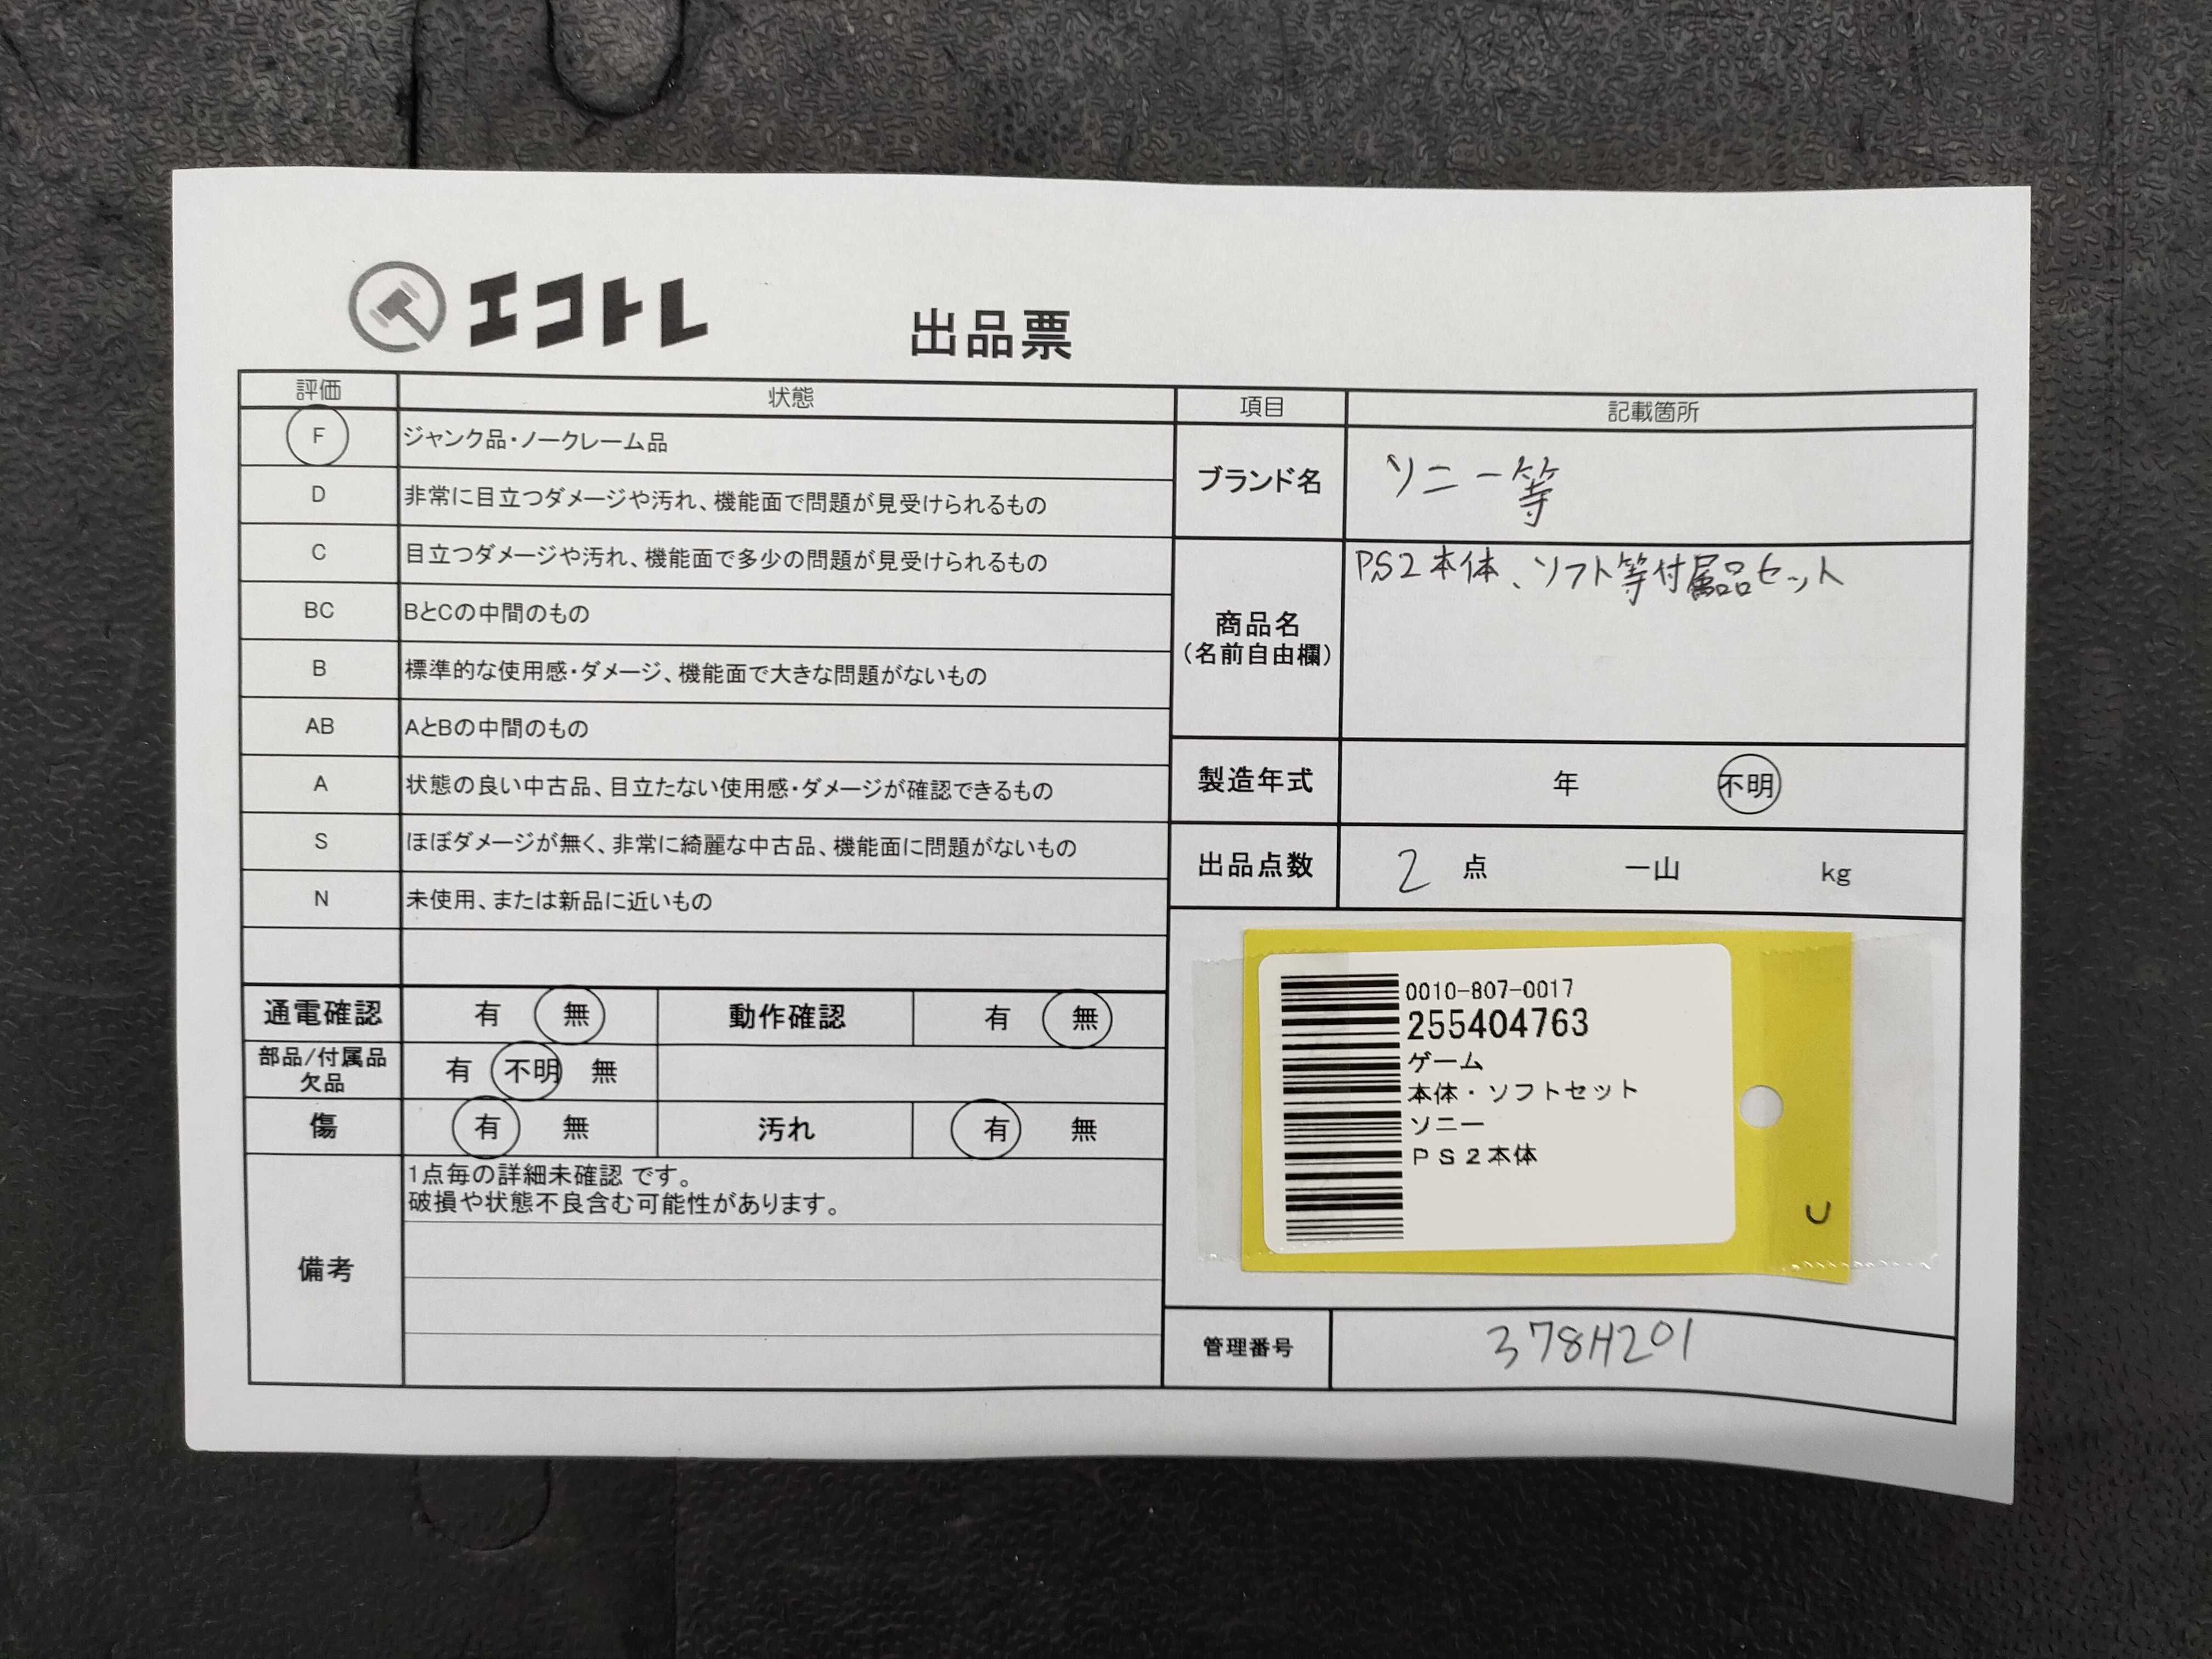 エコトレ
出品票
評価 状態
F ジャンク品・ノークレーム品
D 非常に目立つダメージや汚れ、機能面で問題が見受けられるもの
C 目立つダメージや汚れ、機能面で多少の問題が見受けられるもの
BC BとCの中間のもの
B 標準的な使用感・ダメージ、機能面で大きな問題がないもの
AB AとBの中間のもの
A 状態の良い中古品、目立たない使用感・ダメージが確認できるもの
S ほぼダメージが無く、非常に綺麗な中古品、機能面に問題がないもの
N 未使用、または新品に近いもの
通電確認 有 無 動作確認 有 無
部品/付属品
欠品 有 不明 無
傷 有 無 汚れ 有 無
備考
1点毎の詳細未確認 です。
破損や状態不良含む可能性があります。
項目 記載箇所
ブランド名 ソニー等
商品名
(名前自由欄)
PS2本体、ソフト等付属品セット
製造年式 年 不明
出品点数 2 点 一山 kg
0010-807-0017
255404763
ゲーム
本体・ソフトセット
ソニー
PS2本体
U
管理番号 378H201